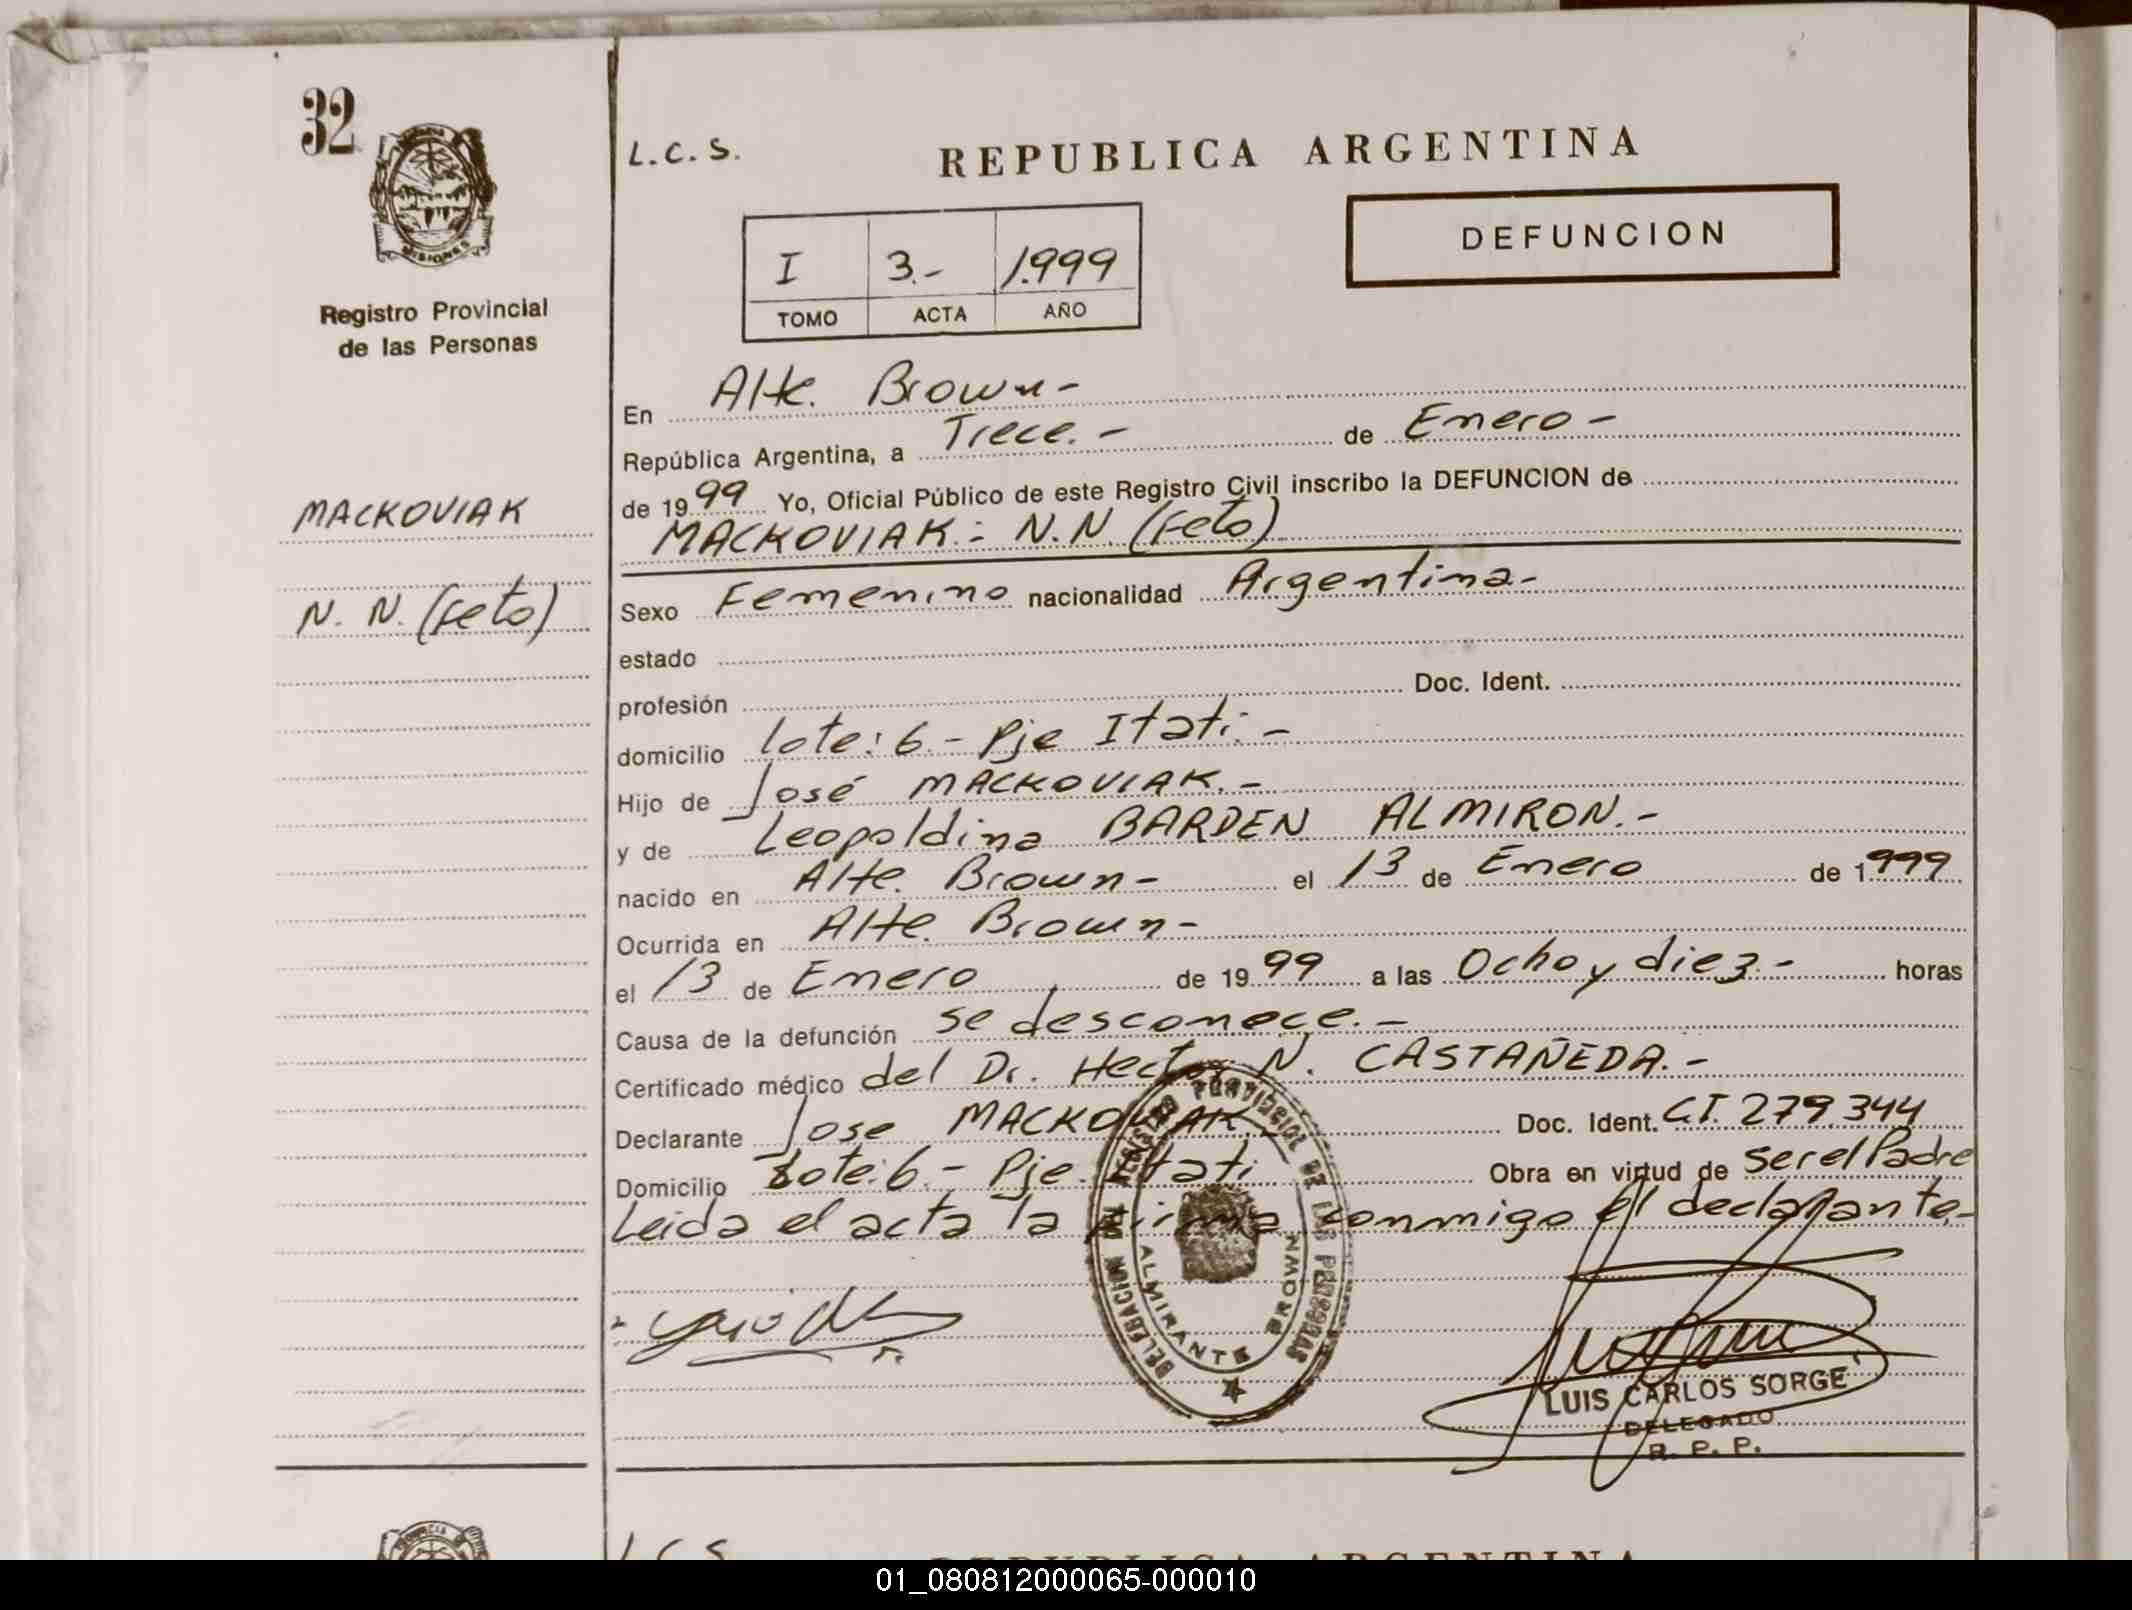 32
MISIONES
Registro Provincial
de las Personas
MACKOVIAK
N. N. (Feto)
L.C.S.
REPUBLICA ARGENTINA
DEFUNCION
I 3.- 1.999
TOMO ACTA AÑO
En Alte. Brown-
República Argentina, a Trece.- de Enero-
de 1999 Yo, Oficial Público de este Registro Civil inscribo la DEFUNCION de
MACKOVIAK.- N.N. (Feto)
Sexo Femenino nacionalidad Argentina-
estado
profesión Doc. Ident.
domicilio lote: 6.- Pje Itatí.-
Hijo de José MACKOVIAK.-
y de Leopoldina BARDEN ALMIRON.-
nacido en Alte. Brown- el 13 de Enero de 1999
Ocurrida en Alte. Brown-
el 13 de Enero de 1999 a las Ocho y diez.- horas
Causa de la defunción se desconoce.-
Certificado médico del Dr. Hector N. CASTAÑEDA.-
Declarante Jose MACKOVIAK.- Doc. Ident. C.I. 279.344
Domicilio Lote: 6.- Pje. Itati Obra en virtud de ser el Padre
Leida el acta la firma conmigo el declarante.-
DELEGACION DEL REGISTRO PROVINCIAL DE LAS PERSONAS
ALMIRANTE BROWN
LUIS CARLOS SORGE
DELEGADO
R. P. P.
L C S
REPUBLICA ARGENTINA
01_080812000065-000010